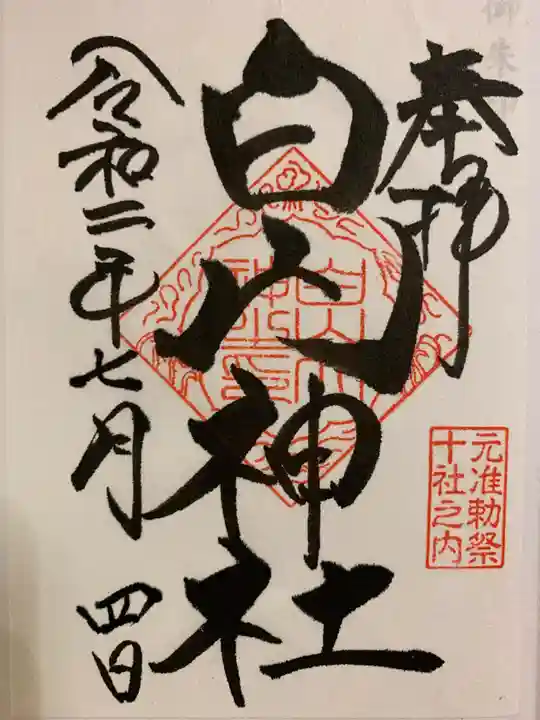 奉拝
元准勅祭
十社之内
白山神社
白山
神社
之印
令和二年七月
四日